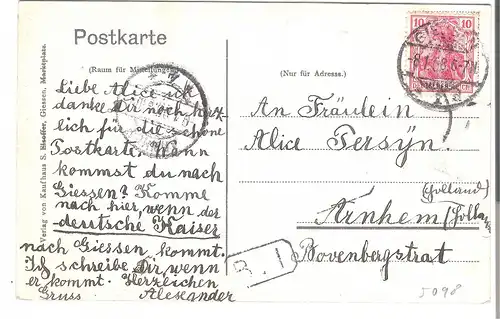 Postkarte
(Raum für Mitteilungen)
(Nur für Adresse.)
Verlag von Kaufhaus S. Bloeffer, Giessen, Marktplatz.
Liebe Alice ich
danke Dir noch herz
lich für die schöne
Postkarte. Wann
kommst du nach
Giessen? Komme
nach hier, wenn der
deutsche Kaiser
nach Giessen kommt.
Ich schreibe Dir wenn
er kommt. Herzlichen
Gruss Alexander
An Fräulein
Alice Tersÿn.
(Holland)
Arnhem (Holla
Bovenbergstrat
B. 1
5098
10 10
DEUTSCHES REICH